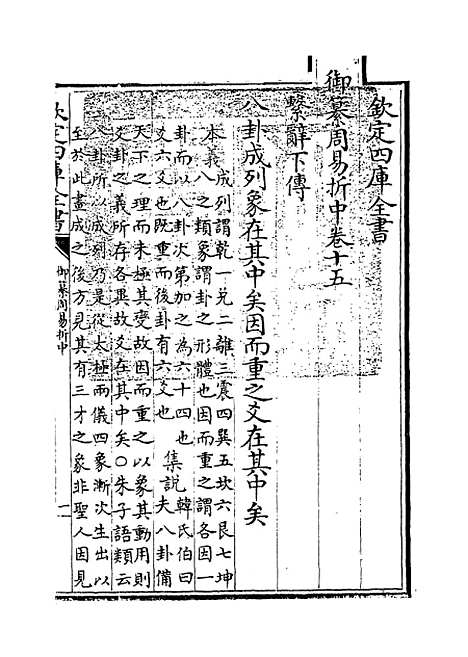 欽定四庫全書
御纂周易折中卷十五
繫辭下傳
八卦成列象在其中矣因而重之爻在其中矣
本義成列謂乾一兌二離三震四巽五坎六艮七坤
八之類象謂卦之形體也因而重之謂各因一
卦而以八卦次第加之為六十四也
爻六爻也既重而後卦有六爻也 集說韓氏伯曰夫八卦備
天下之理而未極其變故因而重之以象其動用則
爻卦之義所存各異故爻在其中矣○朱子語類云
八卦所以成列乃是從太極兩儀四象漸次生出以
至於此畫成之後方見其有三才之象非聖人因見
欽定四庫全書
御纂周易折中
一